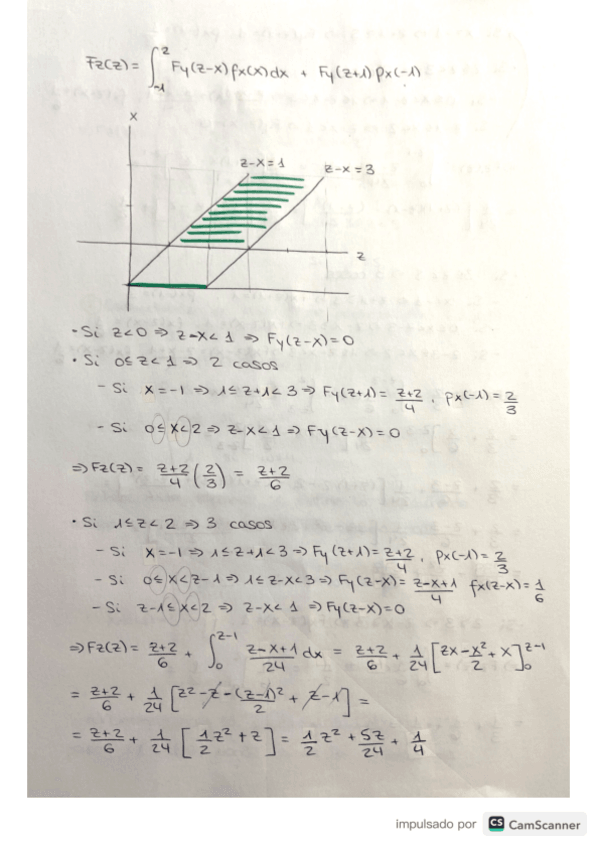 Fz(z) = ∫₋₁² Fy(z-x) fx(x) dx + Fy(z+1) px(-1)
x
z-x=1
z-x=3
z
· Si z<0 ⇒ z-x<1 ⇒ Fy(z-x)=0
· Si 0≤z<1 ⇒ 2 casos
- Si x=-1 ⇒ 1≤z+1<3 ⇒ Fy(z+1) = (z+2)/4 , px(-1) = 2/3
- Si 0≤x<2 ⇒ z-x<1 ⇒ Fy(z-x)=0
⇒ Fz(z) = (z+2)/4 (2/3) = (z+2)/6
· Si 1≤z<2 ⇒ 3 casos
- Si x=-1 ⇒ 1≤z+1<3 ⇒ Fy(z+1) = (z+2)/4 , px(-1) = 2/3
- Si 0≤x<z-1 ⇒ 1≤z-x<3 ⇒ Fy(z-x) = (z-x+1)/4 fx(z-x) = 1/6
- Si z-1≤x<2 ⇒ z-x<1 ⇒ Fy(z-x)=0
⇒ Fz(z) = (z+2)/6 + ∫₀^(z-1) (z-x+1)/24 dx = (z+2)/6 + 1/24 [zx - x²/2 + x]₀^(z-1)
= (z+2)/6 + 1/24 [z² - z - (z-1)²/2 + z - 1] =
= (z+2)/6 + 1/24 [1/2 z² + z] = 1/2 z² + 5z/24 + 1/4
impulsado por CS CamScanner